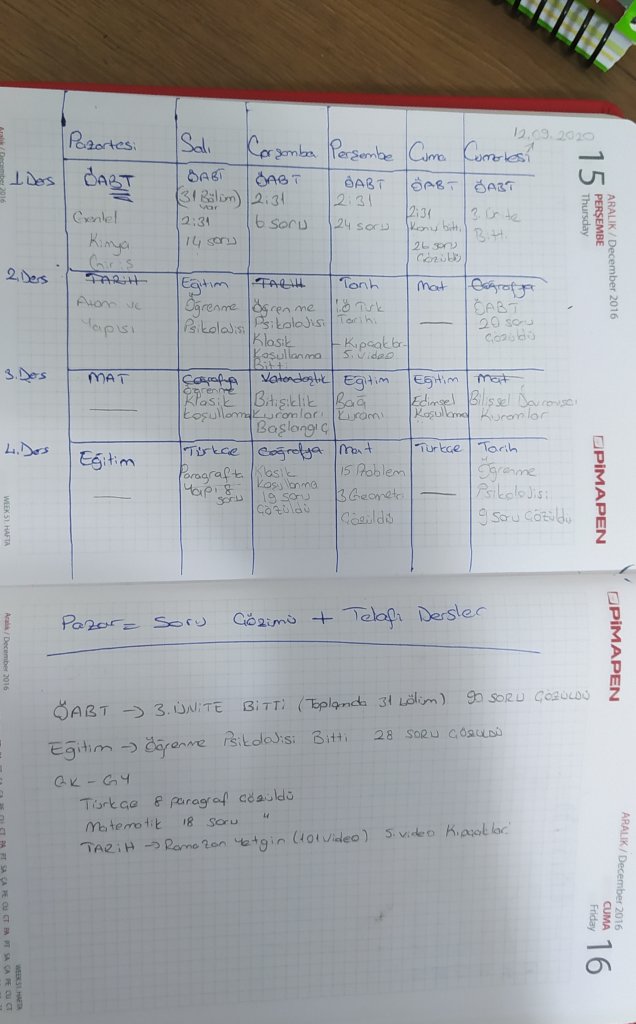 12.09.2020
Pazartesi Salı Çarşamba Perşembe Cuma Cumartesi
1.Ders ÖABT ÖABT ÖABT ÖABT ÖABT ÖABT
(31 Bölüm) 2:31 2:31 2:31 3.ünite
var 6 soru 24 soru Konu bitti Bitti
2:31 26 soru
Kimya 14 soru Çözüldü
Giriş
2.Ders TARİH Eğitim TARİH Tarih Mat Coğrafya
Atom ve Öğrenme Öğrenme İ.Ö Türk — ÖABT
Yapısı Psikolojisi Psikolojisi Tarihi 20 soru
Klasik - Kıpçaklar çözüldü
Koşullanma 5.video
Bitti
3.Ders MAT Coğrafya Vatandaşlık Eğitim Eğitim Mat
— Öğrenme Bitişiklik Bağ Edimsel Bilişsel Davranışçı
Klasik Kuramları Kuramı Koşullama Kuramlar
Koşullanma Başlangıç
4.Ders Eğitim Türkçe Coğrafya Mat Türkçe Tarih
— Paragrafta Klasik 15 Problem — Öğrenme
Yapı 8 Koşullanma 3 Geometri Psikolojisi
soru 19 soru Çözüldü 9 soru Çözüldü
Çözüldü
ARALIK / December 2016
15 PERŞEMBE
Thursday
PİMAPEN
Aralık / December 2016
WEEK 51. HAFTA
Pazar = Soru Çözümü + Telafi Dersler
ÖABT → 3. ÜNİTE BİTTİ (Toplamda 31 bölüm) 90 SORU ÇÖZÜLDÜ
Eğitim → Öğrenme Psikolojisi Bitti 28 SORU ÇÖZÜLDÜ
GK - GY
Türkçe 8 paragraf çözüldü
Matematik 18 soru "
TARİH → Ramazan Yetgin (101 video) 5. video Kıpçaklar
PİMAPEN
ARALIK / December 2016
CUMA 16
Friday
Aralık / December 2016
WEEK 51. HAFTA